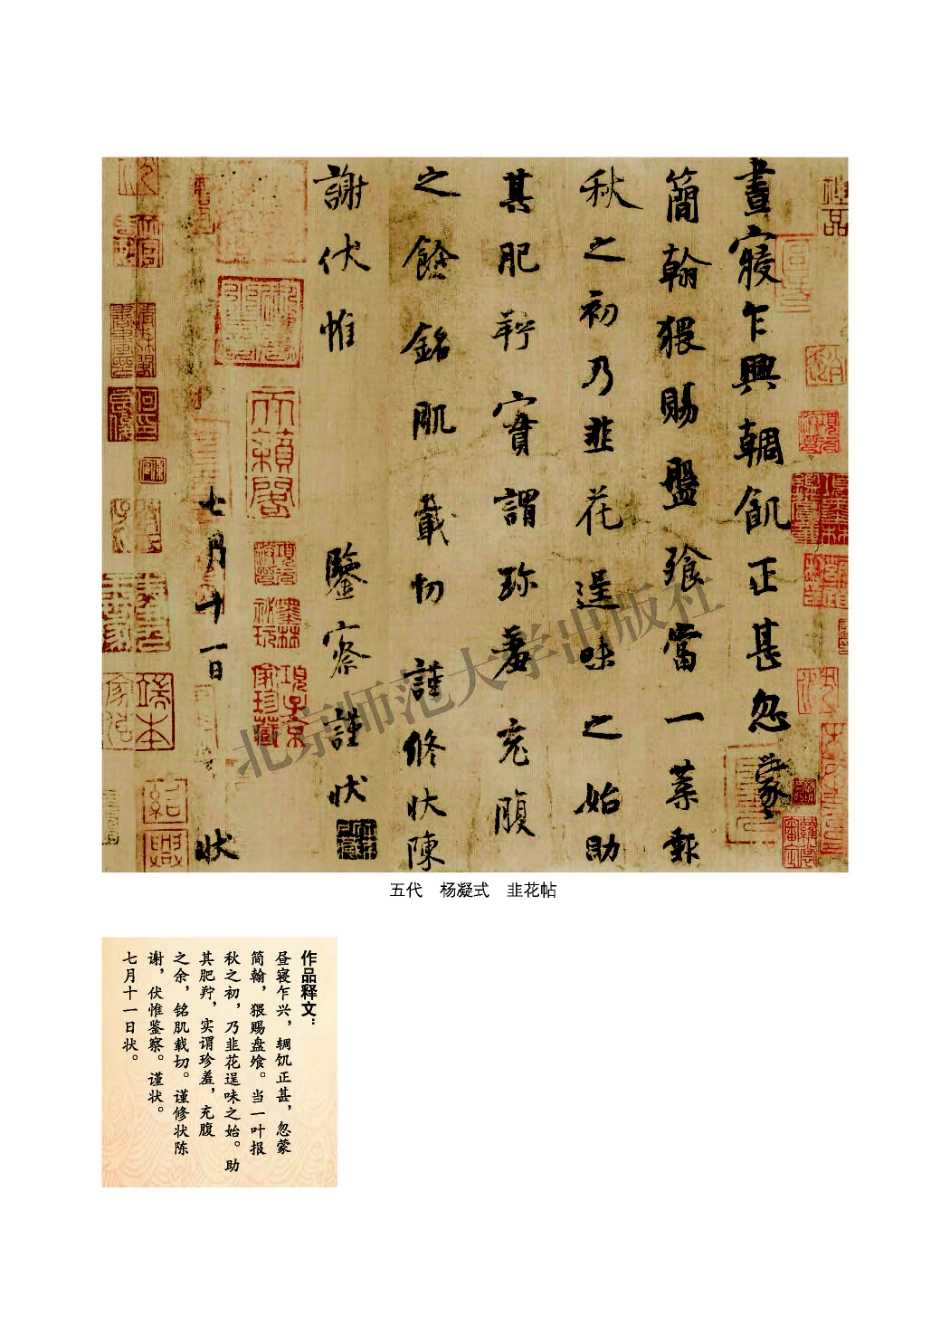 晝寢乍興輖飢正甚忽蒙
簡翰猥賜盤飧當一葉報
秋之初乃韭花逞味之始助
其肥羜實謂珍羞充腹
之餘銘肌載切謹修狀陳
謝伏惟 鑒察謹狀
七月十一日 狀
北京师范大学出版社
五代 杨凝式 韭花帖
作品释文：
昼寝乍兴，輖饥正甚，忽蒙
简翰，猥赐盘飧。当一叶报
秋之初，乃韭花逞味之始。助
其肥羜，实谓珍羞，充腹
之余，铭肌载切。谨修状陈
谢，伏惟鉴察。谨状。
七月十一日状。